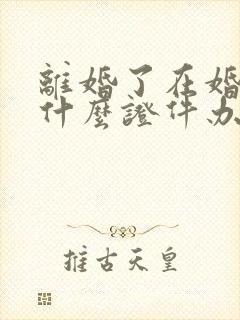 離婚了在婚
什麼證件办
推古天皇